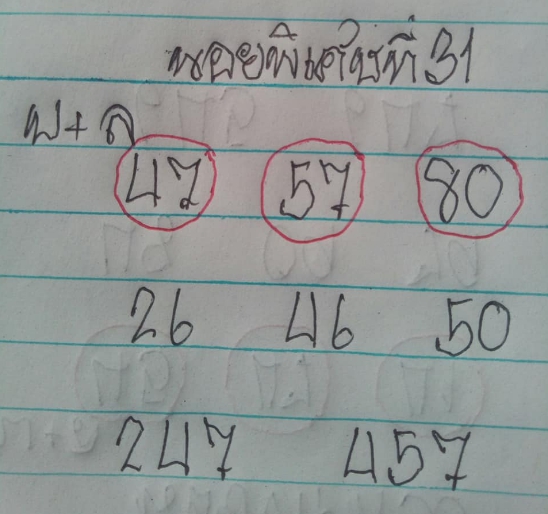 หอยพิเศษที่ 31
บ + ล
47 57 80
26 46 50
247 457